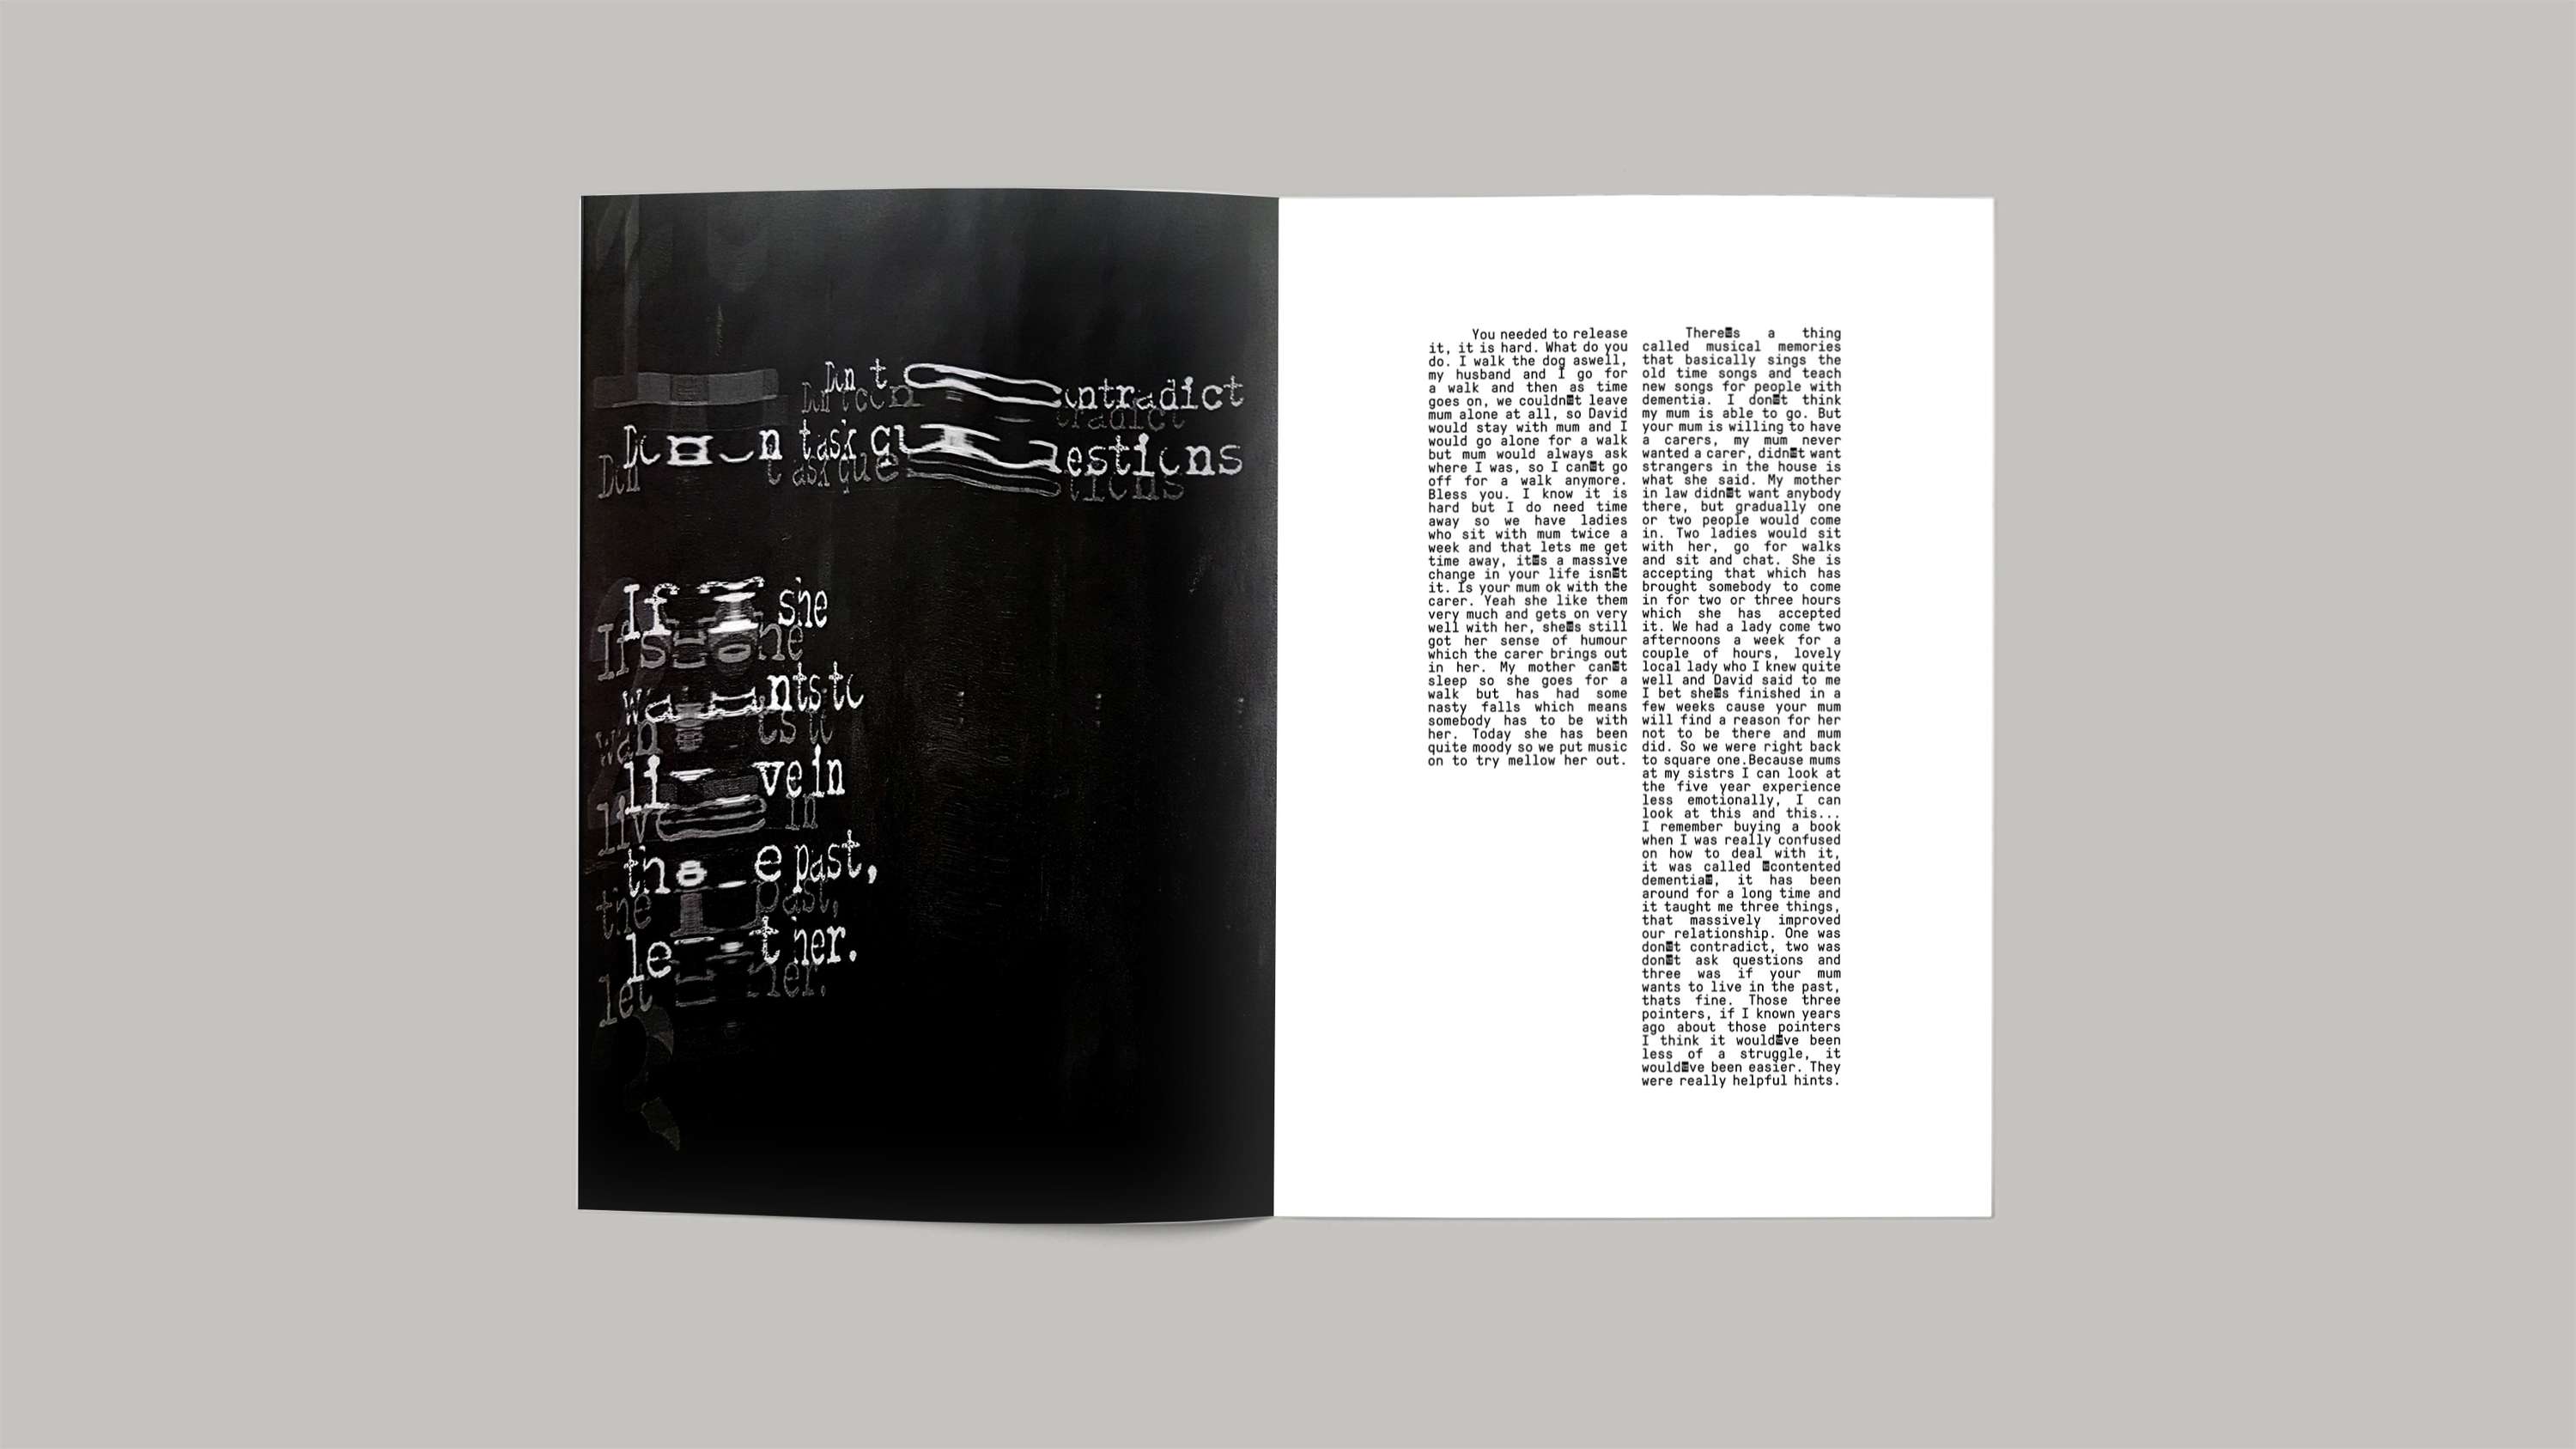 Don t contradict
Don t ask questions
If she
wants to
live in
the past,
let her.
You needed to release
it, it is hard. What do you
do. I walk the dog aswell,
my husband and I go for
a walk and then as time
goes on, we couldn■t leave
mum alone at all, so David
would stay with mum and I
would go alone for a walk
but mum would always ask
where I was, so I can■t go
off for a walk anymore.
Bless you. I know it is
hard but I do need time
away so we have ladies
who sit with mum twice a
week and that lets me get
time away, it■s a massive
change in your life isn■t
it. Is your mum ok with the
carer. Yeah she like them
very much and gets on very
well with her, she■s still
got her sense of humour
which the carer brings out
in her. My mother can■t
sleep so she goes for a
walk but has had some
nasty falls which means
somebody has to be with
her. Today she has been
quite moody so we put music
on to try mellow her out.
There■s a thing
called musical memories
that basically sings the
old time songs and teach
new songs for people with
dementia. I don■t think
my mum is able to go. But
your mum is willing to have
a carers, my mum never
wanted a carer, didn■t want
strangers in the house is
what she said. My mother
in law didn■t want anybody
there, but gradually one
or two people would come
in. Two ladies would sit
with her, go for walks
and sit and chat. She is
accepting that which has
brought somebody to come
in for two or three hours
which she has accepted
it. We had a lady come two
afternoons a week for a
couple of hours, lovely
local lady who I knew quite
well and David said to me
I bet she■s finished in a
few weeks cause your mum
will find a reason for her
not to be there and mum
did. So we were right back
to square one.Because mums
at my sistrs I can look at
the five year experience
less emotionally, I can
look at this and this...
I remember buying a book
when I was really confused
on how to deal with it,
it was called ■contented
dementia■, it has been
around for a long time and
it taught me three things,
that massively improved
our relationship. One was
don■t contradict, two was
don■t ask questions and
three was if your mum
wants to live in the past,
thats fine. Those three
pointers, if I known years
ago about those pointers
I think it would■ve been
less of a struggle, it
would■ve been easier. They
were really helpful hints.